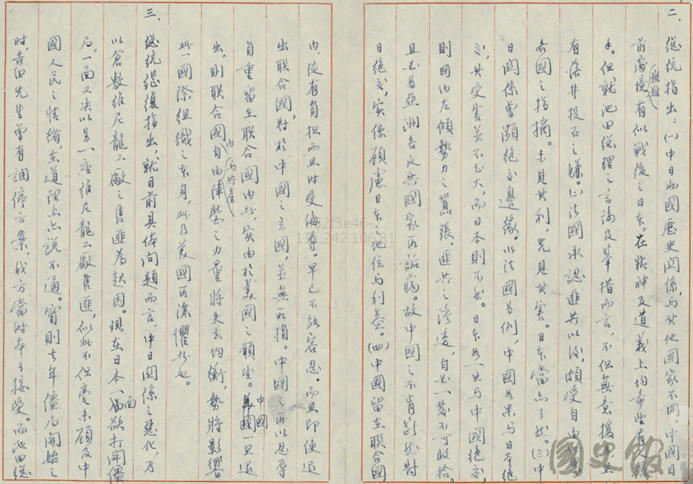 二、總統指出：(一)中日兩國歷史關係與其他國家不同。中國目
前艱難處境有似戰後之日本。在精神及道義上均希望有援
手。但就池田總理之言論及舉措而言，不但無意援手，
有落井投石之嫌。(二)法國承認匪共以後，頗受自由
各國之指摘。未見其利，先見其害。日本當亦了然。(三)中
日關係曾瀕絕交邊緣。以法國為例，中國為與日本絕
交，其受害並不甚大，而日本則不然。日本如一旦與中國絕交，
則國內左傾勢力之囂張，匪共之滲透，自必一發不可收拾。
且必為亞洲各反共國家所詬病。故中國之不肯對於對
日絕交，實係顧慮日本地位與利益。(四)中國留在聯合國
內，徒有負担而且時受侮辱。早已不能容忍。而且即使退
出聯合國，對於中國之立國，並無所損。中國之所以忍辱
自重留在聯合國內者，實由於美國之願望。中國一旦退
出，則聯合國內自由與共產陣營之力量將失去均衡，勢將影響
此一國際組織之本身，此乃美國所深懼者也。
三、總統繼續指出，就目前具體問題而言，中日關係之惡化，乃
以倉敷維尼龍工廠之售匪為訣因。現在日本一面欲打開僵
局，一面又決以另一座維尼龍工廠售匪，似此不但毫未顧及中
國人民之情緒，在道理上亦說不通。實則去年僵局開始之
時，吉田先生曾有調停方案，我方當時亦予接受。而池田總
國史館